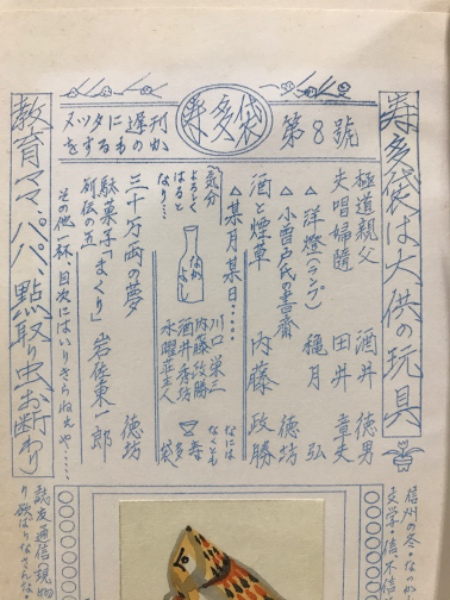 壽多袋
第8號
ヌッタに遅刊
をするもの
壽多袋は大供の玩具
教育ママ、パパ、點取り虫お断わり
極道親父 酒井徳男
夫唱婦隨 田井章夫
△洋燈(ランプ) 穐月弘
△小曽戸氏の書斎 徳坊
酒と煙草 内藤政勝
△某月某日・・・・
川口栄三
内藤政勝
酒井香坊
水曜荘主人
気分
よろしく
はると
なり…
なには
なくとも
壽
多
袋
三十万両の夢 徳坊
駄菓子「まくり」 岩佐東一郎
列伝の五
その他一杯、目次にはいりきらねえや・・・・
信州の冬・なつか
支学・信不信
誌友通信の現物
り欲ばりなさんな・